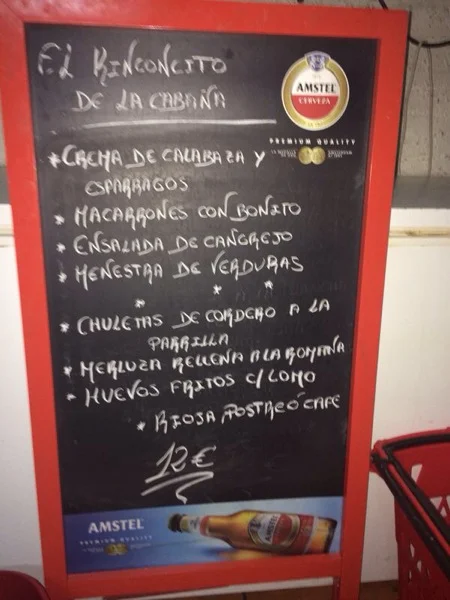 EL RINCONCITO
DE LA CABAÑA
AMSTEL
CERVEZA
PREMIUM QUALITY
*CREMA DE CALABAZA Y
ESPARRAGOS
* MACARRONES CON BONITO
* ENSALADA DE CANGREJO
* MENESTRA DE VERDURAS
* * *
* CHULETAS DE CORDERO A LA
PARRILLA
* MERLUZA RELLENA A LA ROMANA
* HUEVOS FRITOS C/ LOMO
* RIOJA POSTRE Ó CAFE
12€
AMSTEL
PREMIUM QUALITY
AMSTEL